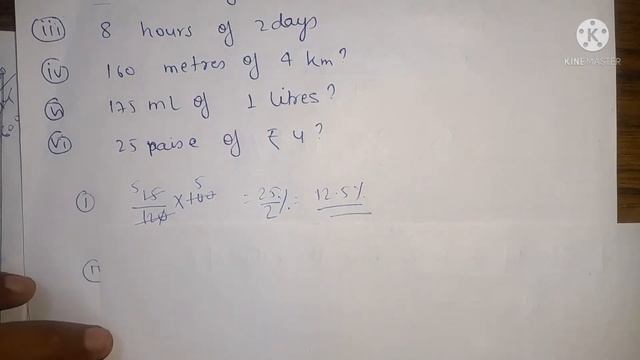 (iii) 8 hours of 2days
(iv) 160 metres of 4 km?
(v) 175 ml of 1 litres?
(vi) 25 paise of ₹ 4?
(i) 5 15/120 × 100 5 = 25/2 % = 12.5%
(ii
KINEMASTER